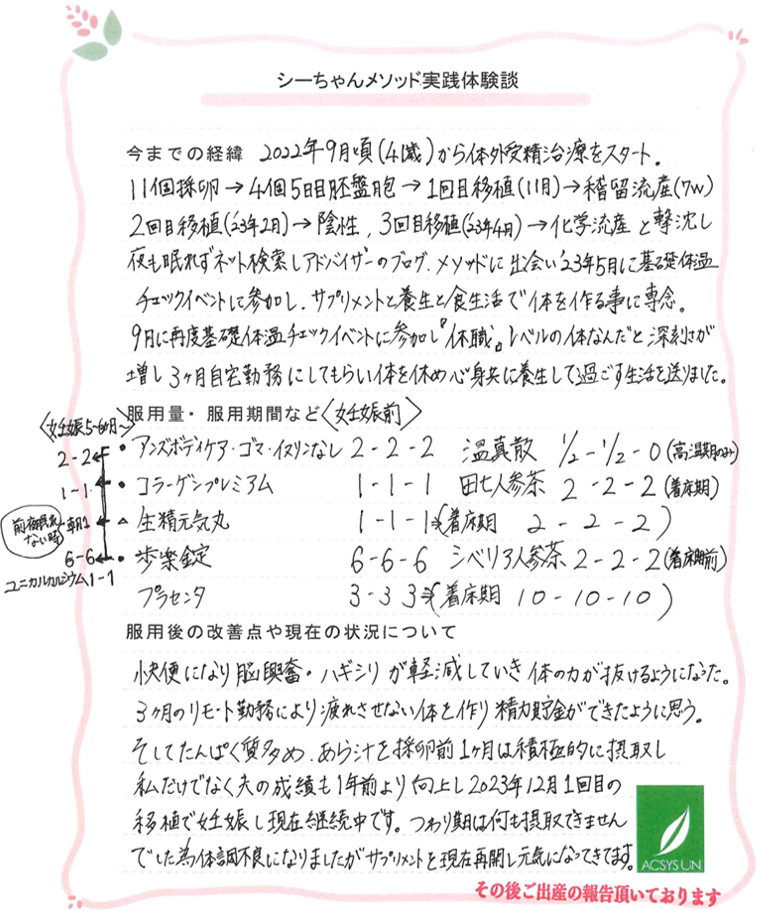 シーちゃんメソッド実践体験談
今までの経緯 2022年9月頃(41歳)から体外受精治療をスタート。
11個採卵→4個5日目胚盤胞→1回目移植(11月)→稽留流産(7w)
2回目移植('23年2月)→陰性、3回目移植('23年4月)→化学流産と撃沈し
夜も眠れずネット検索しアドバイザーのブログ、メソッドに出会い'23年5月に基礎体温
チェックイベントに参加し、サプリメントと養生と食生活で体を作る事に専念。
9月に再度基礎体温チェックイベントに参加し『休職』レベルの体なんだと深刻さが
増し3ヶ月自宅勤務にしてもらい体を休め心身共に養生して過ごす生活を送りました。
服用量・服用期間など〈妊娠前〉
〈妊娠5~6ヶ月~〉
2-2 ● アンズボディケア・ゴマ・イヌリンなし 2-2-2 温真散 1/2-1/2-0(高温期のみ)
1-1 ● コラーゲンプレミアム 1-1-1 田七人参茶 2-2-2(着床期)
前夜眠れない時 朝1 △ 生精元気丸 1-1-1→(着床期 2-2-2)
6-6 ● 歩楽錠 6-6-6 シベリア人参茶 2-2-2(着床期前)
ユニカルカルシウム1-1
プラセンタ 3-3-3→(着床期 10-10-10)
服用後の改善点や現在の状況について
快便になり脳興奮・ハギシリが軽減していき体の力が抜けるようになった。
3ヶ月のリモート勤務により疲れさせない体を作り精力貯金ができたように思う。
そしてたんぱく質多め、あら汁を採卵前1ヶ月は積極的に摂取し
私だけでなく夫の成績も1年前より向上し2023年12月1回目の
移植で妊娠し現在継続中です。つわり期は何も摂取できません
でした為体調不良になりましたがサプリメントを現在再開し元気になってきてます。
ACSYSUN
その後ご出産の報告頂いております